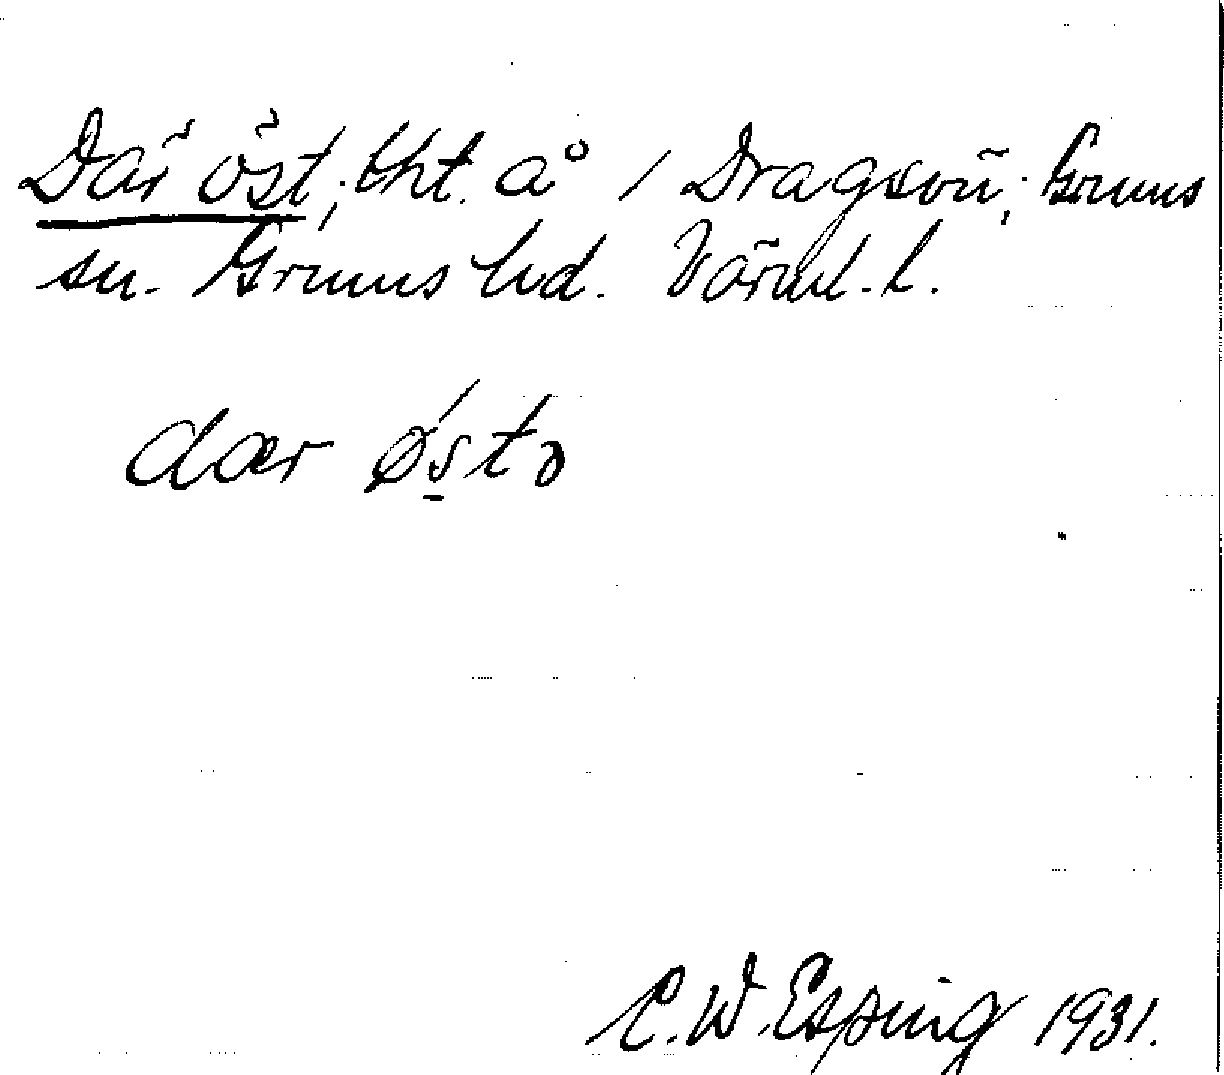 Där öst, tht. å / Dragsön, Grums
sn. Grums hd. Värml. l.
dær ǿsto
C. W. Esping 1931.